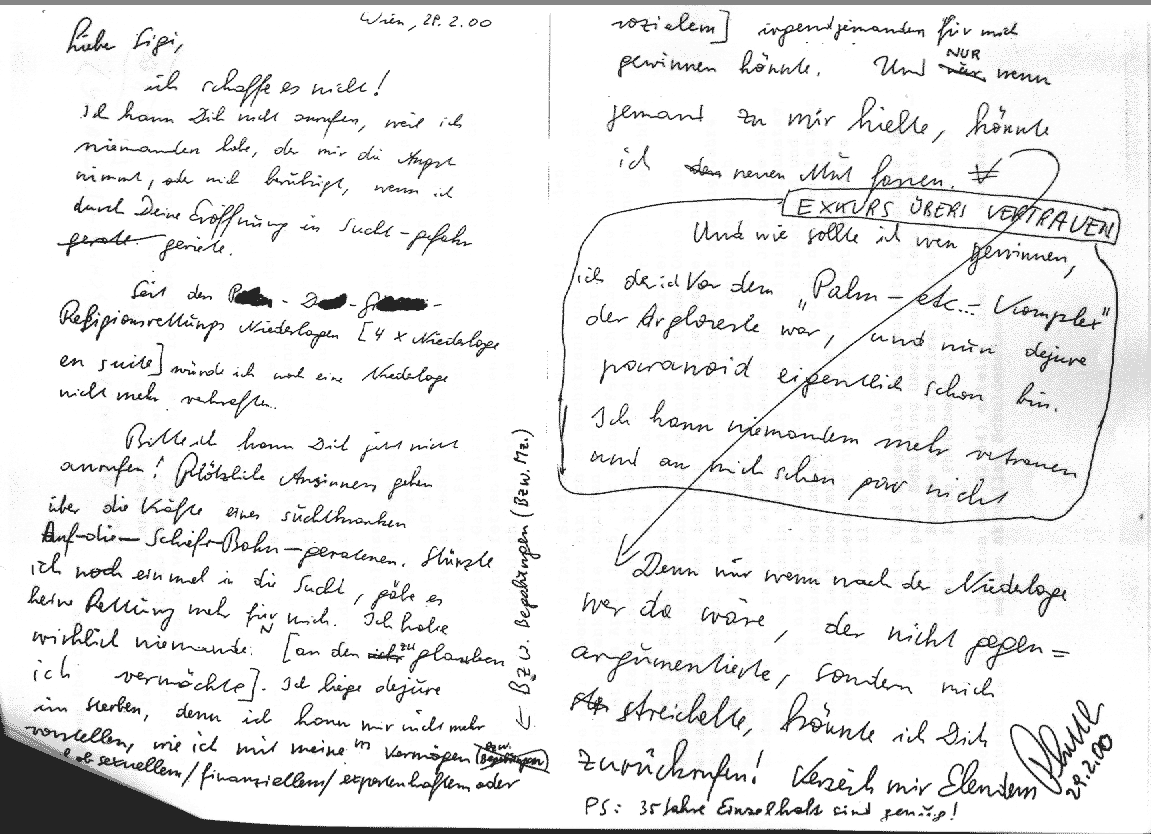 Wien, 29.2.00
Lieber Sigi,
ich schaffe es nicht!
Ich kann Dich nicht anrufen, weil ich
niemanden habe, der mir die Angst
nimmt, oder mich beruhigt, wenn ich
durch Deine Eröffnung in Sucht-gefahr
gerate. geriete.
Seit den
Religionsrettungs Niederlagen [4 x Niederlage
en suite] würde ich noch eine Niederlage
nicht mehr verkraften.
Bitte ich kann Dich jetzt nicht
anrufen! Plötzliche Ansinnen gehen
über die Kräfte eines suchtkranken
Auf-die-Schiefe-Bahn-geratenen. Stürzte
ich noch einmal in die Sucht, gäbe es
keine Rettung mehr für mich. Ich habe
wirklich niemanden. [an den zu glauben
ich vermöchte]. Ich liege dejure
im sterben, denn ich kann mir nicht mehr
vorstellen, wie ich mit meinem Vermögen (bzw. Begabungen)
ob sexuellem/finanziellem/expertenhaftem oder
← Bzw. Begabungen (Bzw. Mz.)
sozialem] irgendjemanden für mich
gewinnen könnte. Und nur NUR wenn
jemand zu mir hielte, könnte
ich neuen Mut fassen.
EXKURS ÜBERS VERTRAUEN
Und wie sollte ich wen gewinnen,
ich der ich vor dem „Palm-etc.-Komplex"
der Argloseste war, und nun dejure
paranoid eigentlich schon bin.
Ich kann niemandem mehr vertrauen
und an mich schon gar nicht
Denn nur wenn nach der Niederlage
wer da wäre, der nicht gegen=
argumentierte, sondern mich
streichelte, könnte ich Dich
zurückrufen! Verzeih mir Elendem
29.2.00
PS: 35 Jahre Einzelhaft sind genug!